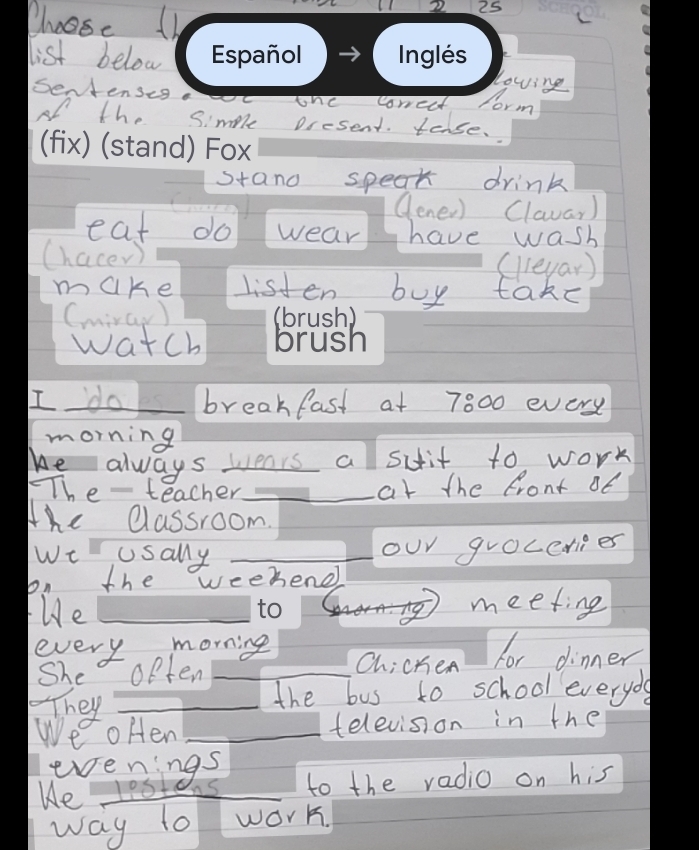 11 2 25 SCHOOL
Choose the
Español → Inglés
list below
lowing
sentenses. the correct form
of the simple present. tense.
(fix) (stand) Fox
stand speak drink
(tener) (lavar)
eat do wear have wash
(hacer) (llevar)
make listen buy take
(mirar) (brush)
watch brush
I do breakfast at 7:00 every
morning
He always wears a suit to work
The teacher ______ at the front of
the Classroom.
We usally ______ our groceries
on the weekend
He ______ to (morning) meeting
every morning
She often ______ Chicken for dinner
They ______ the bus to school everyday
We often ______ television in the
evenings
He listens to the radio on his
way to work.